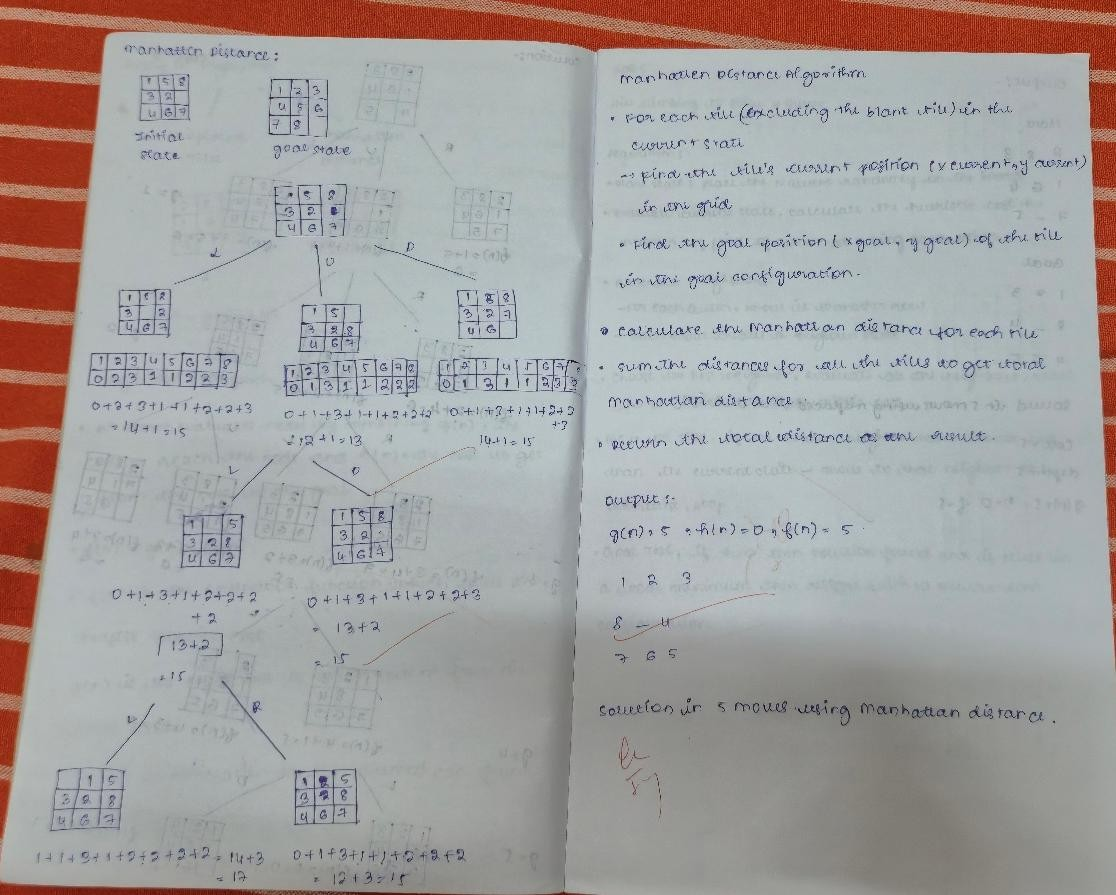 Manhatten Distance :
1 5 8
3 2
4 6 7
Initial
state
1 2 3
4 5 6
7 8
goal state
5 8
3 2
4 6 7
L
U
D
1 5 8
3 2
4 6 7
1 5
3 2 8
4 6 7
1 5 8
3 2 7
4 6
1 2 3 4 5 6 7 8
0 2 3 1 1 2 2 3
1 2 3 4 5 6 7 8
0 1 3 1 1 2 2 2
1 2 3 4 5 6 7 8
0 1 3 1 1 2 3 3
0+2+3+1+1+2+2+3
= 14+1 = 15
0+1+3+1+1+2+2+2
= 12+1 = 13
0+1+3+1+1+2+3
+3
14+1 = 15
L
D
1 5
3 2 8
4 6 7
1 5 8
3 2
4 6 7
0+1+3+1+2+2+2
+2
13+2
= 15
0+1+3+1+1+2+2+3
= 13+2
= 15
R
1 5
3 2 8
4 6 7
1 2 5
3 8
4 6 7
1+1+3+1+2+2+2+2 = 14+3
= 17
0+1+3+1+1+2+2+2
= 12+3 = 15
Manhatten Distance Algorithm
• For each tile (excluding the blank tile) in the
current state
→ Find the tile's current position (x current, y current)
in the grid
• Find the goal position (x goal, y goal) of the tile
in the goal configuration.
• calculate the Manhattan distance for each tile
• sum the distances for all the tiles to get total
manhattan distance.
• Return the total distance as the result.
output :-
g(n) = 5 , h(n) = 0 , f(n) = 5
1 2 3
8 – 4
7 6 5
solution in 5 moves using manhattan distance.